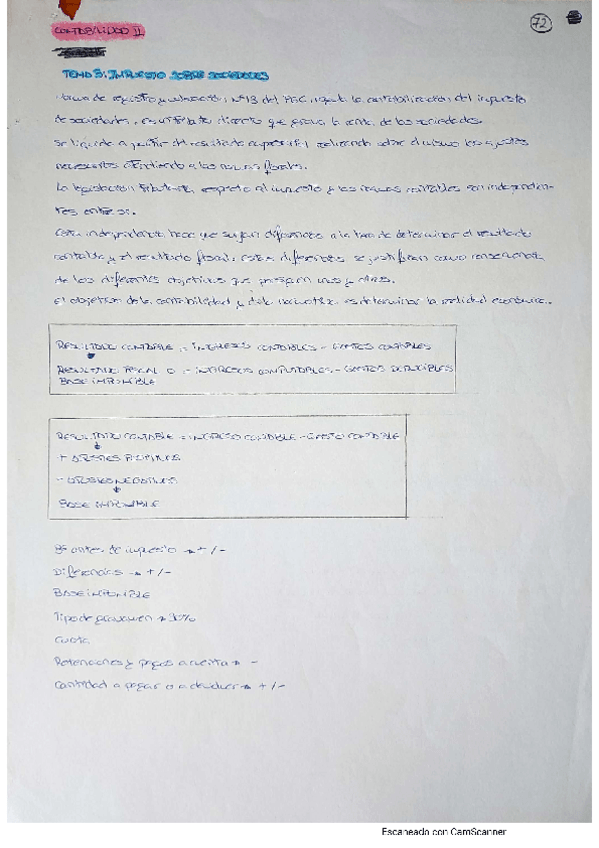 CONTABILIDAD II
72
TEMA 3: IMPUESTO SOBRE SOCIEDADES
norma de registro y valoración, Nº13 del PGC, regula la contabilización del impuesto
de sociedades, es un tributo directo que grava la renta de las sociedades.
Se liquida a partir del resultado empresarial, realizando sobre el mismo los ajustes
necesarios atendiendo a las normas fiscales.
La legislación tributaria, respecto al impuesto y las normas contables son independien-
tes entre si.
Esta independencia hace que surjan diferencias a la hora de determinar el resultado
contable y el resultado fiscal, estas diferencias se justifican como consecuencia
de los diferentes objetivos que persiguen unos y otros.
El objetivo de la contabilidad y de la normativa es determinar la realidad económica.
RESULTADO CONTABLE = INGRESOS CONTABLES - GASTOS CONTABLES
RESULTADO FISCAL O = INGRESOS COMPUTABLES - GASTOS DEDUCIBLES
BASE IMPONIBLE
RESULTADO CONTABLE = INGRESO CONTABLE - GASTO CONTABLE
+ AJUSTES POSITIVOS
- AJUSTES NEGATIVOS
BASE IMPONIBLE
Bº antes de impuesto → + / -
Diferencias → + / -
BASE IMPONIBLE
Tipo de gravamen → 30%
Cuota
Retenciones y pagos a cuenta → -
Cantidad a pagar o a devolver → + / -
Escaneado con CamScanner